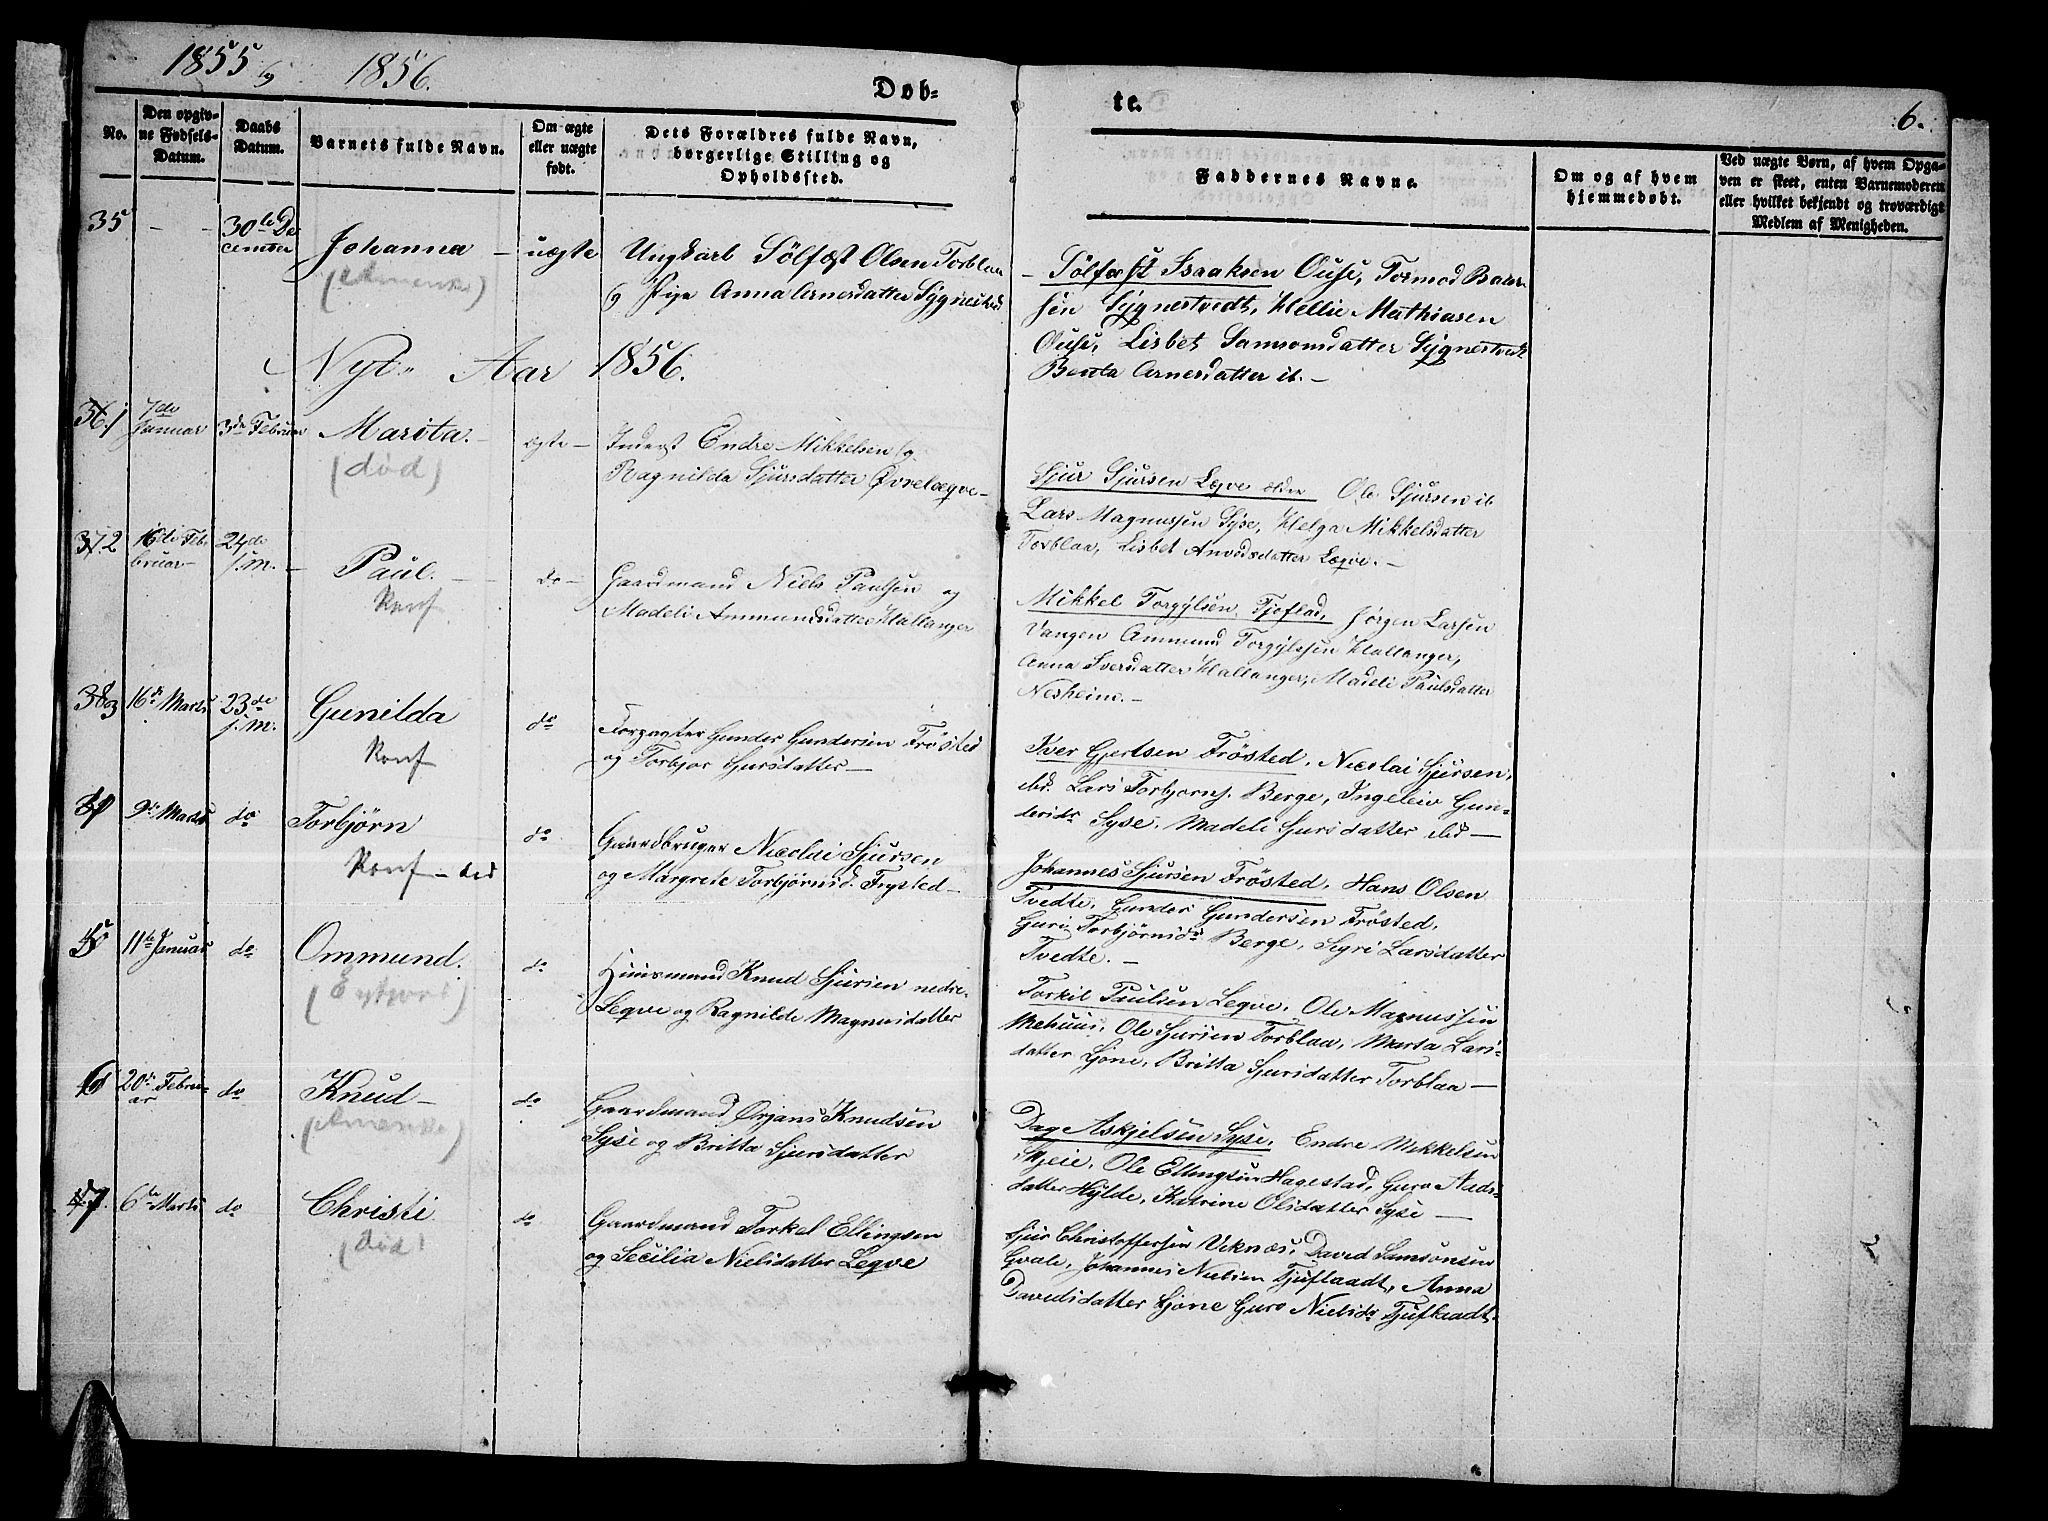 1855 og 1856.
Døb-
te.
6.
No.
Den opgiv-
ne Fødsels-
Datum.
Daabs
Datum.
Barnets fulde Navn.
Om ægte
eller uægte
født.
Dets Forældres fulde Navn,
borgerlige Stilling og
Opholdssted.
Faddernes Navne.
Om og af hvem
hjemmedøbt.
Ved uægte Børn, af hvem Opga-
ven er skeet, enten Barnemoderen
eller hvilket bekjendt og troværdigt
Medlem af Menigheden.
35 - - 30te De
cember
Johanna -
(Amerika)
uægte
Ungkarl Sölfæst Olsen Torblaa
og Pige Anna Arnersdatter Sygnestved
- Sölfæst Isaaksen Ouse, Tormod Baar-
sen Sygnestvedt, Hellie Mathiasen
Ouse, Lisbet Samsonsdatter Sygnestvedt
Arnersdatter ib. -
Nyt Aar 1856.
36/1
7de
Januar
3de Februar
Marita. -
(død)
ægte -
Inderst Endre Mikkelsen og
Ragnilda Sjursdatter Øvrelæqve -
Sjur Sjursen Leqve ældre Ole Sjursen ib
Lars Magnussen Syse, Helga Mikkelsdatter
Torblaa, Lisbet Amundsdatter Leqve. -
37.2
16de Feb-
bruar -
24de
s.m. -
Paul. -
Konf
do -
Gaardmand Niels Paulsen og
Madeli Ammundsdatter Hallanger
Mikkel Torgylsen Tjoflad, Jørgen Larsen
Vangen Ammund Torgylssen Hallanger,
Anna Iversdatter Hallanger, Madeli Paulsdatter
Nesheim. -
38 3
16de Marts
23de
s.m.
Gunilda
Konf
do
Forpagter Gunder Gundersen Frösted
og Torbjor Gursdatter -
Iver Gjertsen Frösted, Nicolai Sjursen
ibd. Lars Torbjorns. Berge, Ingeleiv Gun-
dersdr Syse. Madeli Gursdatter ibid -
9de Marts
do
Torbjørn
Konf - død
do
Gaardbruger Nicolai Sjursen
og Margrete Torbjørnsd. Frysted -
Johannes Sjursen Frösted, Hans Olsen
Tvedte, Gunder Gundersen Frösted,
Guri Torbjørnsdr Berge, Segri Larsdatter
Tvedte. -
5
11te Januar
do
Ommund.
do
Huusmand Knud Sjursen nedre
Leqve og Ragnilde Magnusdatter
Torkil Paulsen Leqve, Ole Magnussen
Mehuus, Ole Sjursen Torblaa, Marta Lars-
datter Ljone, Britta Sjursdatter Torblaa -
6
20de Febru-
ar
do
Knud -
(Amerika)
do
Gaardmand Ørjans Knudsen
Syse og Britta Sjursdatter
Dag Askjelsen Syse, Endre Mikkelsen
Skjeie, Ole Ellingsen Hagestad, Guro Aads-
datter Hylde, Katrine Olsdatter Syse -
7.
6de Marts
do
Christi
(død)
do
Gaardmand Torkel Ellingsen
og Secilia Nielsdatter Leqve
Sjur Christoffersen Viknæs, David Samsonsen
Qvale, Johannes Nielsen Tjuflaadt, Anna
Davidsdatter Ljone Guro Nielsdr Tjuflaadt.